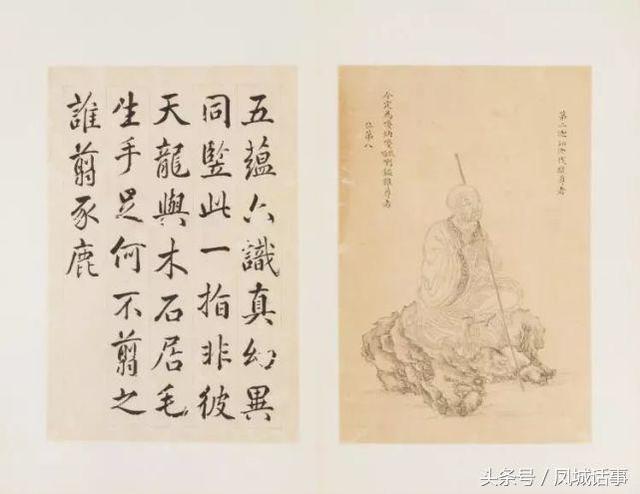 第二迦諾迦伐蹉尊者
今定為嘎納嘎喇雜尊者
位第八
五蘊六識真幻異
同豎此一指非彼
天龍與木石居毛
生手足何不翦之
誰翦豕鹿
头条号／凤城话事